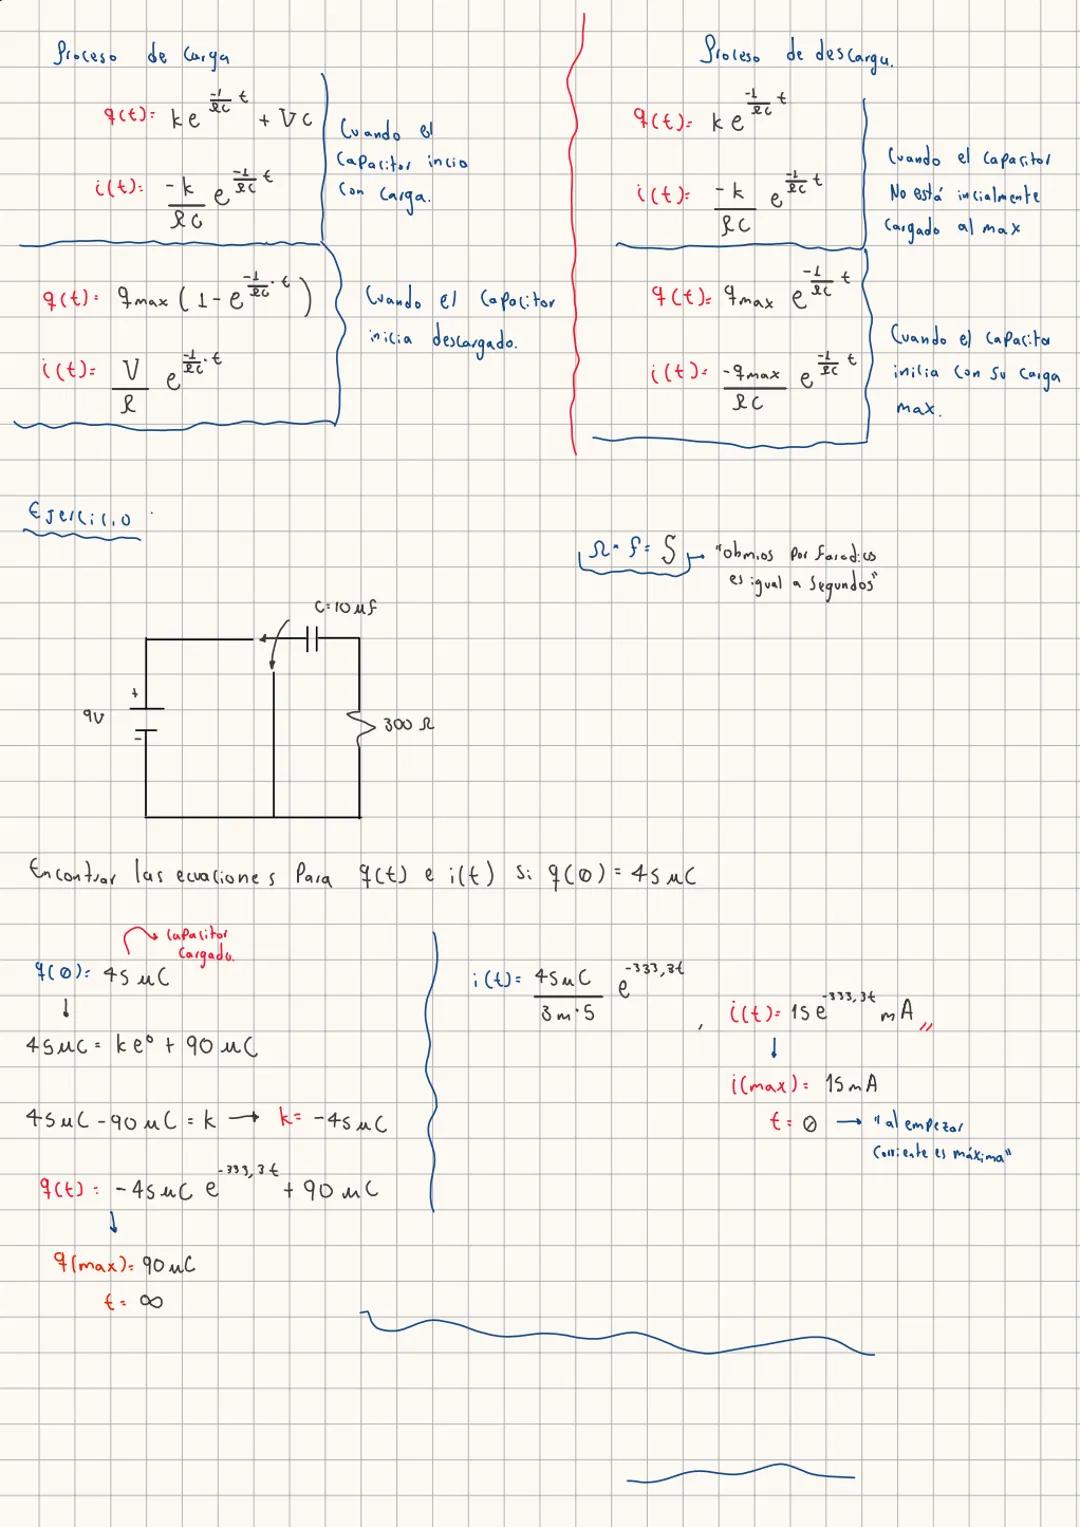 Proceso de Carga
q(t): k e^(-1/RC t) + VC
i(t): -k/RC e^(-1/RC t)
Cuando el
Capacitor incio
Con Carga.
q(t): qmax ( 1 - e^(-1/RC · t) )
i(t): V/R e^(-1/RC · t)
Cuando el Capacitor
inicia descargado.
Proceso de descarga.
q(t): k e^(-1/RC t)
i(t): -k/RC e^(-1/RC t)
Cuando el Capacitor
No está incialmente
Cargado al max
q(t): qmax e^(-1/RC t)
i(t): -qmax/RC e^(-1/RC t)
Cuando el Capacito
inicia Con su Carga
max.
Ejercicio
Ω · f = S → "ohmios Por faradios
es igual a Segundos"
C: 10 μf
+
9V
-
300 Ω
Encontrar las ecuaciones Para q(t) e i(t) si q(0) = 45 μC
Capacitor
Cargado.
q(0): 45 μC
45 μC = k e⁰ + 90 μC
45 μC - 90 μC = k → k = -45 μC
q(t): -45 μC e^(-333,3t) + 90 μC
q(max): 90 μC
t = ∞
i(t) = 45 μC / 3 m·S e^(-333,3t) , i(t) = 15 e^(-333,3t) mA //
i(max) = 15 mA
t = 0 → "al empezar
Corriente es máxima"